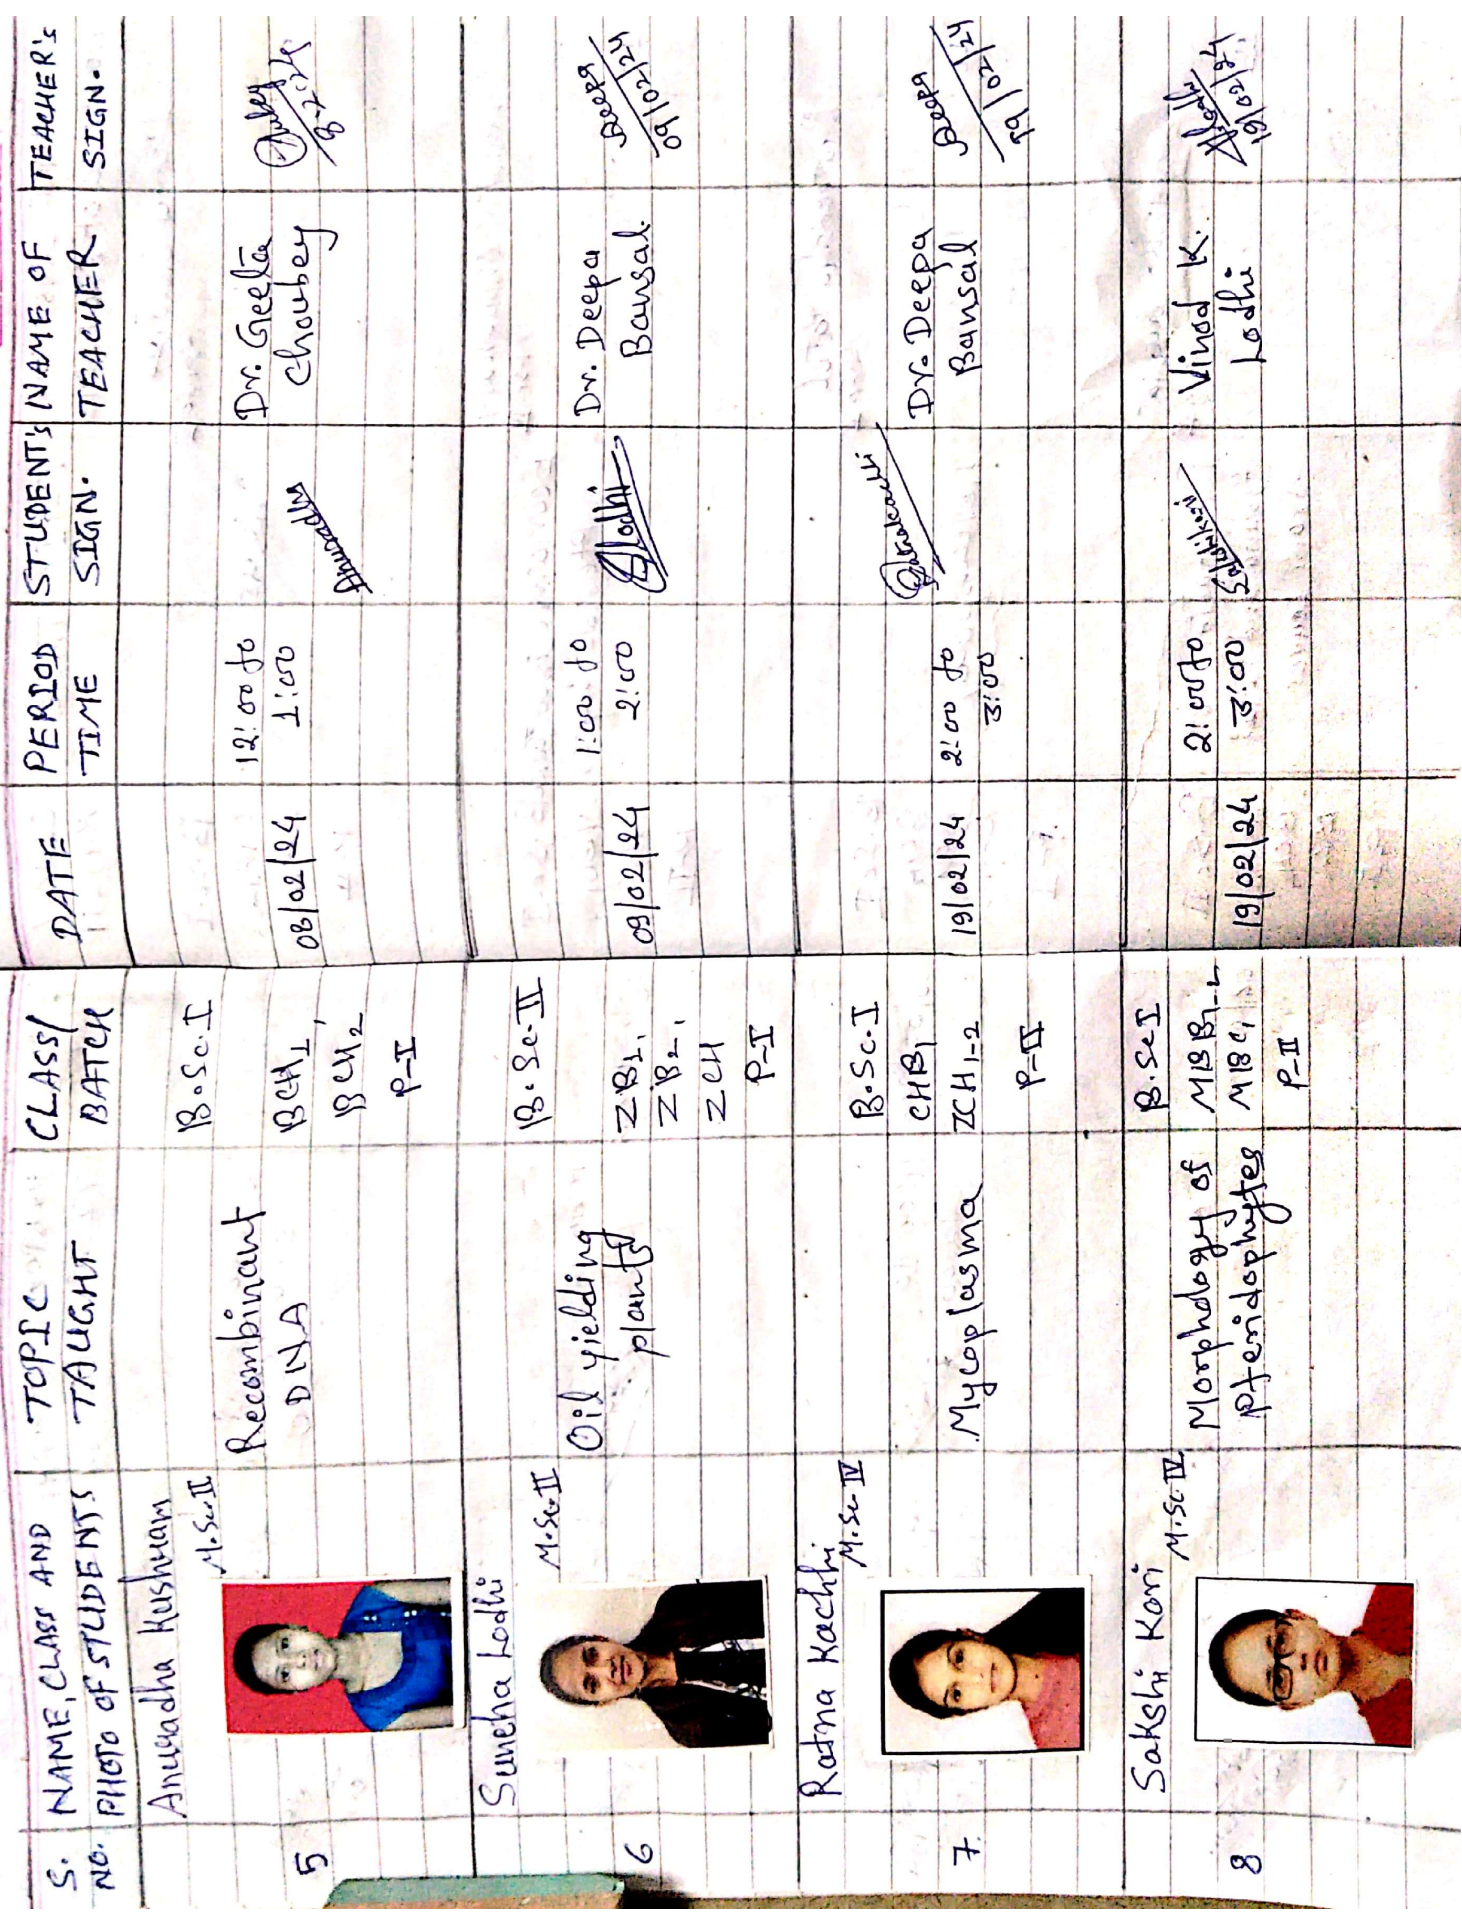 S. NO.
NAME, CLASS AND PHOTO OF STUDENTS
TOPIC TAUGHT
CLASS/ BATCH
DATE
PERIOD TIME
STUDENT'S SIGN.
NAME OF TEACHER
TEACHER'S SIGN.
5
Anuradha Kushwam
M.Sc. II
Recombinant
DNA
B.Sc. I
BCH1,
BCH2
P-I
08/02/24
12:00 to
1:00
Anuradha
Dr. Geeta
Choubey
8.2.24
6
Suneha Lodhi
M.Sc. II
Oil yielding
plants
B.Sc. II
ZB1,
ZB2,
ZCH
P-I
09/02/24
1:00 to
2:00
Lodhi
Dr. Deepa
Bansal
Deepa
09/02/24
7.
Ratna Kachhi
M.Sc. IV
Mycoplasma
B.Sc. I
CHB1
ZCH1-2
P-II
19/02/24
2:00 to
3:00
Ratnakachhi
Dr. Deepa
Bansal
Deepa
19/02/24
8
Sakshi Kori
M.Sc. IV
Morphology of
pteridophytes
B.Sc I
MBB1-2
MBC1
P-II
19/02/24
2:00 to
3:00
Sakshikori
Vinod K.
Lodhi
19/02/24